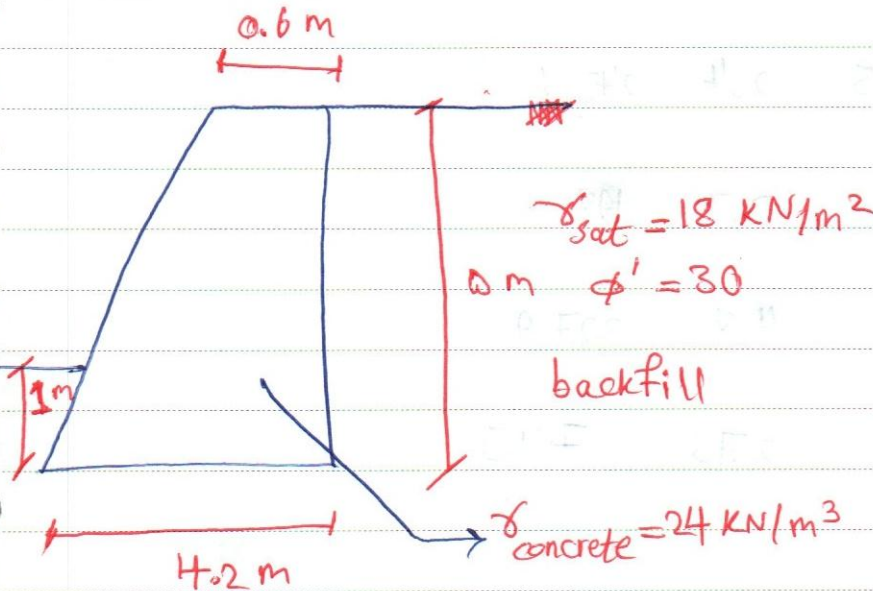 0.6 m
γsat = 18 KN/m²
m ϕ' = 30
1m
backfill
γconcrete = 24 KN/m³
4.2 m